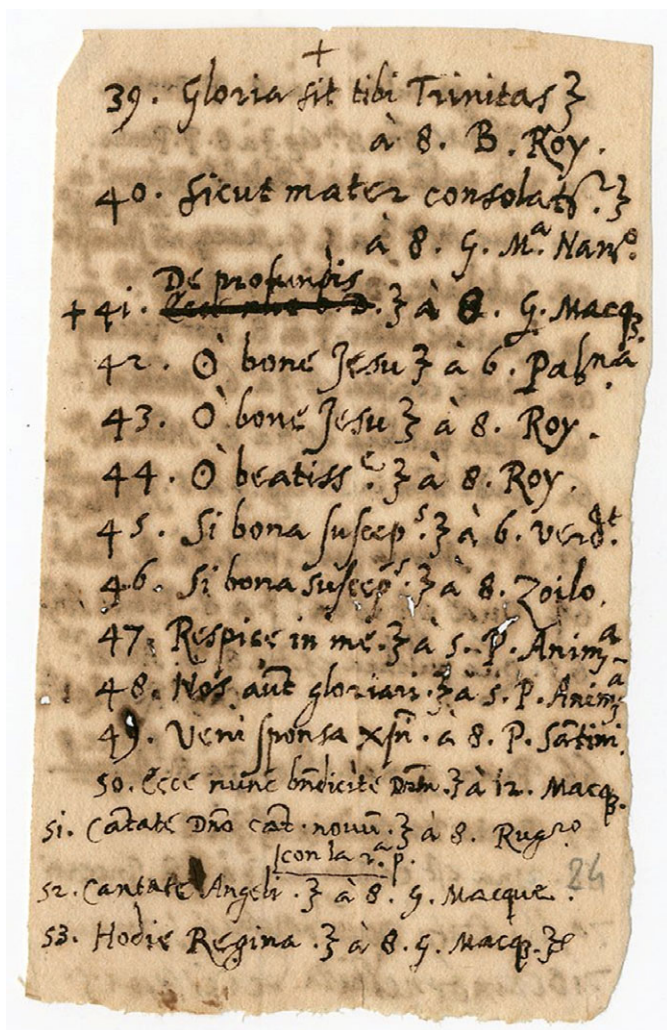 +
39. Gloria sit tibi Trinitas
à 8. B. Roy.
40. Sicut mater consolat.
à 8. G. Mᵃ. Nanᵒ.
De profundis
+ 41. à 8. G. Macq.
42. Ò bone Jesu à 6. Palnᵃ.
43. Ò bone Jesu à 8. Roy.
44. Ò beatissᵉ. à 8. Roy.
45. Si bona suscepˢ. à 6. Verdᵗ.
46. Si bona suscepˢ. à 8. Zoilo.
47. Respice in me. à 5. P. Animᵃ
48. Nos aūt gloriari. à 5. P. Animᵃ
49. Veni sponsa xpī. à 8. P. Sātini.
50. Ecce nunc bn̄dicite Dnm̄. à 12. Macq.
51. Cātate Dn̄o cāt. novū. à 8. Rugᵒ.
con la 2ᵃ. p.
84
52. Cantate Angeli. à 8. G. Macque.
53. Hodie Regina. à 8. G. Macq.